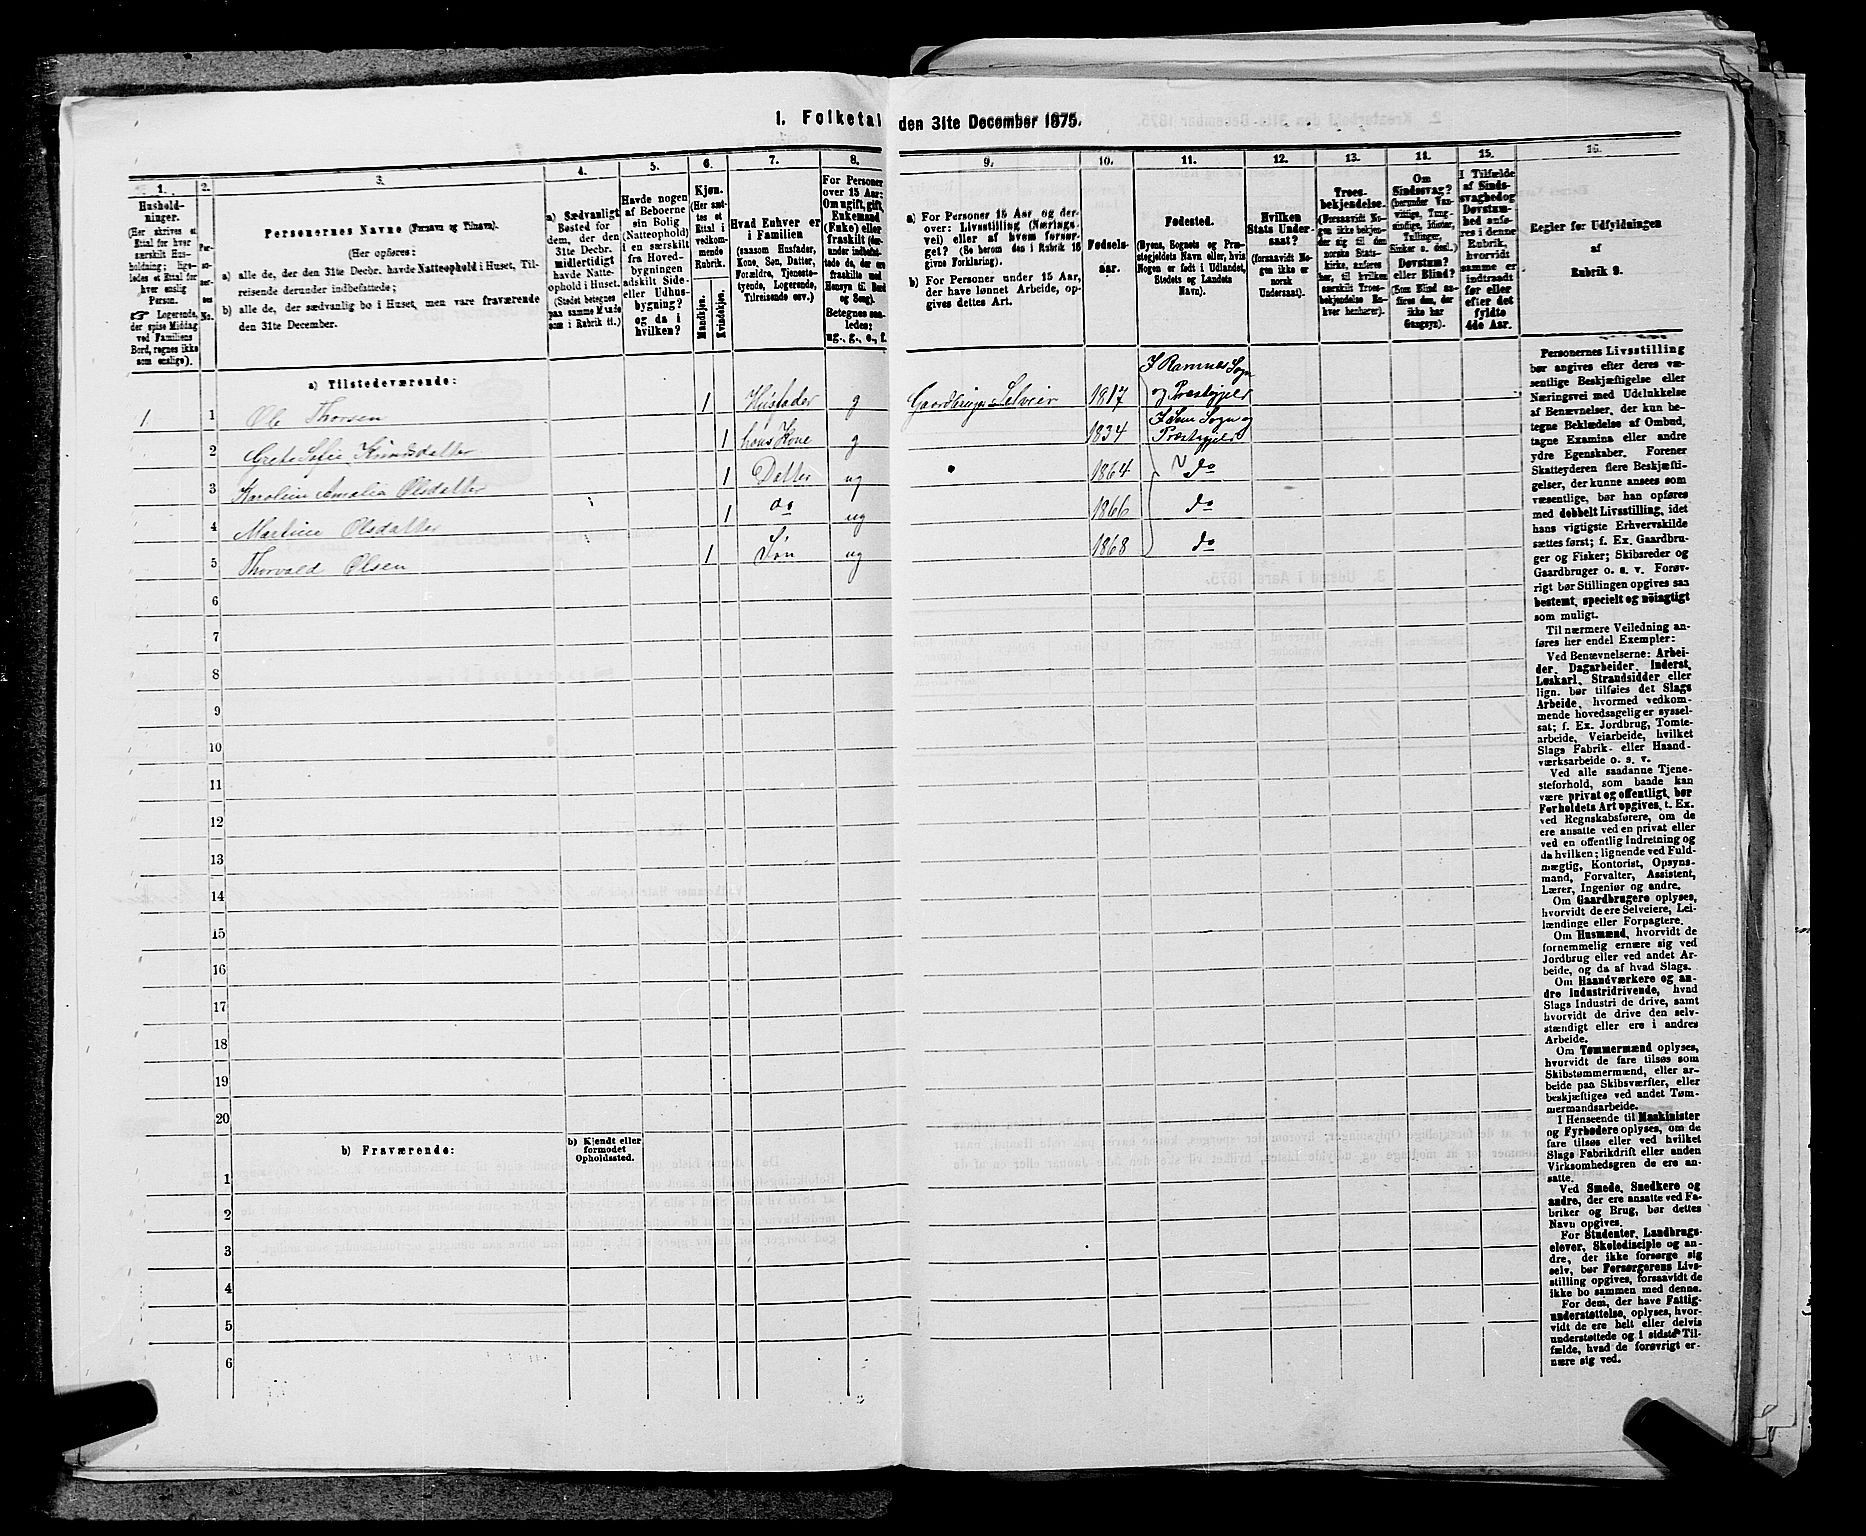 1. Folketal den 31te December 1875.
1.
2.
3.
4.
5.
6.
7.
8.
9.
10.
11.
12.
13.
14.
15.
16.
Hushold-
ninger.
(Her skrives et
Ettal for hver
særskilt Hus-
holdning; lige-
ledes et Ettal for
hver enslig
Person.
☞ Logerende,
der spise Middag
ved Familiens
Bord, regnes ikke
som enslige).
Per-
so-
ner-
nes
No.
Personernes Navne (Fornavn og Tilnavn).
(Her opføres:
a) alle de, der den 31te Decbr. havde Natteophold i Huset, Til-
reisende derunder indbefattede;
b) alle de, der sædvanlig bo i Huset, men vare fraværende
den 31te December.
a) Sædvanligt
Bosted for
dem, der den
31te Decbr.
midlertidigt
havde Natte-
ophold i Huset.
(Stedet betegnes
paa samme Maade
som i Rubrik 11.)
Havde nogen
af Beboerne
sin Bolig
(Natteophold)
i en særskilt
fra Hoved-
bygningen
adskilt Side-
eller Udhus-
bygning?
og da i
hvilken?
Kjøn.
(Her sæt-
tes et
Ettal i
vedkom-
mende
Rubrik.
Mandkjøn.
Kvindekjøn.
Hvad Enhver er
i Familien
(saasom Husfader,
Kone, Søn, Datter,
Forældre, Tjeneste-
tyende, Logerende,
Tilreisende osv.)
For Personer
over 15 Aar:
Om ugift, gift,
Enkemand
(Enke) eller
fraskilt (der-
under indbefat-
tede de, der ere
fraskilte med
Hensyn til Bord
og Seng).
Betegnes saa-
ledes:
ug., g., e., f.
a) For Personer 15 Aar og der-
over: Livsstilling (Nærings-
vei) eller af hvem forsør-
get? (Se herom den i Rubrik 16
givne Forklaring).
b) For Personer under 15 Aar,
der have lønnet Arbeide, op-
gives dettes Art.
Fødsels-
aar.
Fødested.
(Byens, Sognets og Præ-
stegjeldets Navn eller, hvis
Nogen er født i Udlandet,
Stedets og Landets
Navn).
Hvilken
Stats Under-
saat?
(forsaavidt No-
gen ikke er
norsk
Undersaat).
Troes-
bekjendelse.
(Forsaavidt No-
gen ikke bekjen-
der sig til den
norske Stats-
kirke, anføres
her, til hvilken
særskilt Troes-
bekjendelse En-
hver henhører).
Om
Sindssvag?
(herunder Van-
vittige, Tung-
sindige, Idioter,
Tullinger,
Sinker o. desl.)
Døvstum?
eller Blind?
(Som Blind an-
føres den, der
ikke har
Gangsyn).
I Tilfælde
af Sinds-
svaghed og
Døvstum-
hed anfø-
res i denne
Rubrik,
hvorvidt
samme er
indtraadt
før eller
efter det
fyldte
4de Aar.
Regler for Udfyldningen
af
Rubrik 9.
a) Tilstedeværende:
1 1 Ole Thorsen 1 Husfader g Gaardbruger Selveier 1817 I Ramnes Sogn og Præstegjeld
2 Grete Sofie Knudsdatter 1 hans Kone g 1834 I Sem Sogn og Præstegjeld
3 Karoline Amalia Olsdatter 1 Datter ug 1864 do
4 Martine Olsdatter 1 do ug 1866 do
5 Thorvald Olsen 1 Søn ug 1868 do
6
7
8
9
10
11
12
13
14
15
16
17
18
19
20
b) Fraværende:
b) Kjendt eller
formodet
Opholdssted.
1
2
3
4
5
6
Personernes Livsstilling
bør angives efter deres væ-
sentlige Beskjæftigelse eller
Næringsvei med Udelukkelse
af Benævnelser, der kun be-
tegne Beklædelse af Ombud,
tagne Examina eller andre
ydre Egenskaber. Forener
Skatteyderen flere Beskjæfti-
gelser, der kunne ansees som
væsentlige, bør han opføres
med dobbelt Livsstilling, idet
hans vigtigste Erhvervskilde
sættes først; f. Ex. Gaardbru-
ger og Fisker; Skibsreder og
Gaardbruger o. s. v. Forøv-
rigt bør Stillingen opgives saa
bestemt, specielt og nöiagtigt
som muligt.
Til nærmere Veiledning an-
føres her endel Exempler:
Ved Benævnelserne: Arbei-
der, Dagarbeider, Inderst,
Løskarl, Strandsidder eller
lign. bør tilføies det Slags
Arbeide, hvormed vedkom-
mende hovedsagelig er syssel-
sat; f. Ex. Jordbrug, Tomte-
arbeide, Veiarbeide, hvilket
Slags Fabrik- eller Haand-
værksarbeide o. s. v.
Ved alle saadanne Tjene-
steforhold, som baade kan
være privat og offentligt, bør
Forholdets Art opgives, t. Ex.
ved Regnskabsførere, om de
ere ansatte ved en privat eller
ved en offentlig Indretning og
da hvilken; lignende ved Fuld-
mægtig, Kontorist, Opsyns-
mand, Forvalter, Assistent,
Lærer, Ingeniør og andre.
Om Gaardbrugere oplyses,
hvorvidt de ere Selveiere, Lei-
lændinge eller Forpagtere.
Om Husmænd, hvorvidt de
fornemmelig ernære sig ved
Jordbrug eller ved andet Ar-
beide, og da af hvad Slags.
Om Haandværkere og an-
dre Industridrivende, hvad
Slags Industri de drive, samt
hvorvidt de drive den selv-
stændigt eller ere i andres
Arbeide.
Om Tømmermænd oplyses,
hvorvidt de fare tilsøs som
Skibstømmermænd, eller ar-
beide paa Skibsværfter, eller
beskjæftiges ved andet Tøm-
mermandsarbeide.
I Henseende til Maskinister
og Fyrbødere oplyses, om de
fare tilsøs eller ved hvilket
Slags Fabrikdrift eller anden
Virksomhedsgren de ere an-
satte.
Ved Smede, Snedkere og
andre, der ere ansatte ved Fa-
briker og Brug, bør dettes
Navn opgives.
For Studenter, Landbrugs-
elever, Skoledisciple og an-
dre, der ikke forsørge sig
selv, bør Forsørgerens Livs-
stilling opgives, forsaavidt de
ikke bo sammen med denne.
For dem, der have Fattig-
understøttelse, oplyses, hvor-
vidt de ere helt eller delvis
understøttede og i sidste Til-
fælde, hvad de forøvrigt er-
nære sig ved.